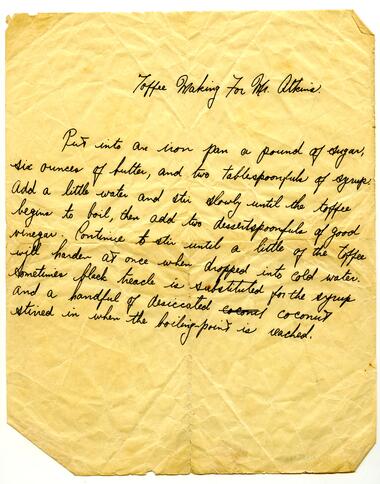 Toffee Making For Mr. Atkins.
Put into an iron pan a pound of sugar,
six ounces of butter, and two tablespoonfuls of syrup.
Add a little water and stir slowly until the toffee
begins to boil, then add two dessertspoonfuls of good
vinegar. Continue to stir until a little of the toffee
will harden at once when dropped into cold water.
Sometimes black treacle is substituted for the syrup
and a handful of desiccated coconut coconut
stirred in when the boiling-point is reached.